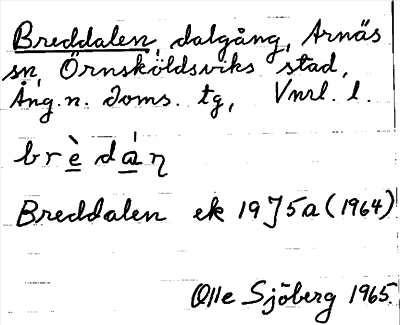 Breddalen, dalgång, Arnäs
sn, Örnsköldsviks stad,
Ång. n. doms. tg, Vnrl. l.
brè̲ dá̲ η
Breddalen ek 19J5a (1964)
Olle Sjöberg 1965